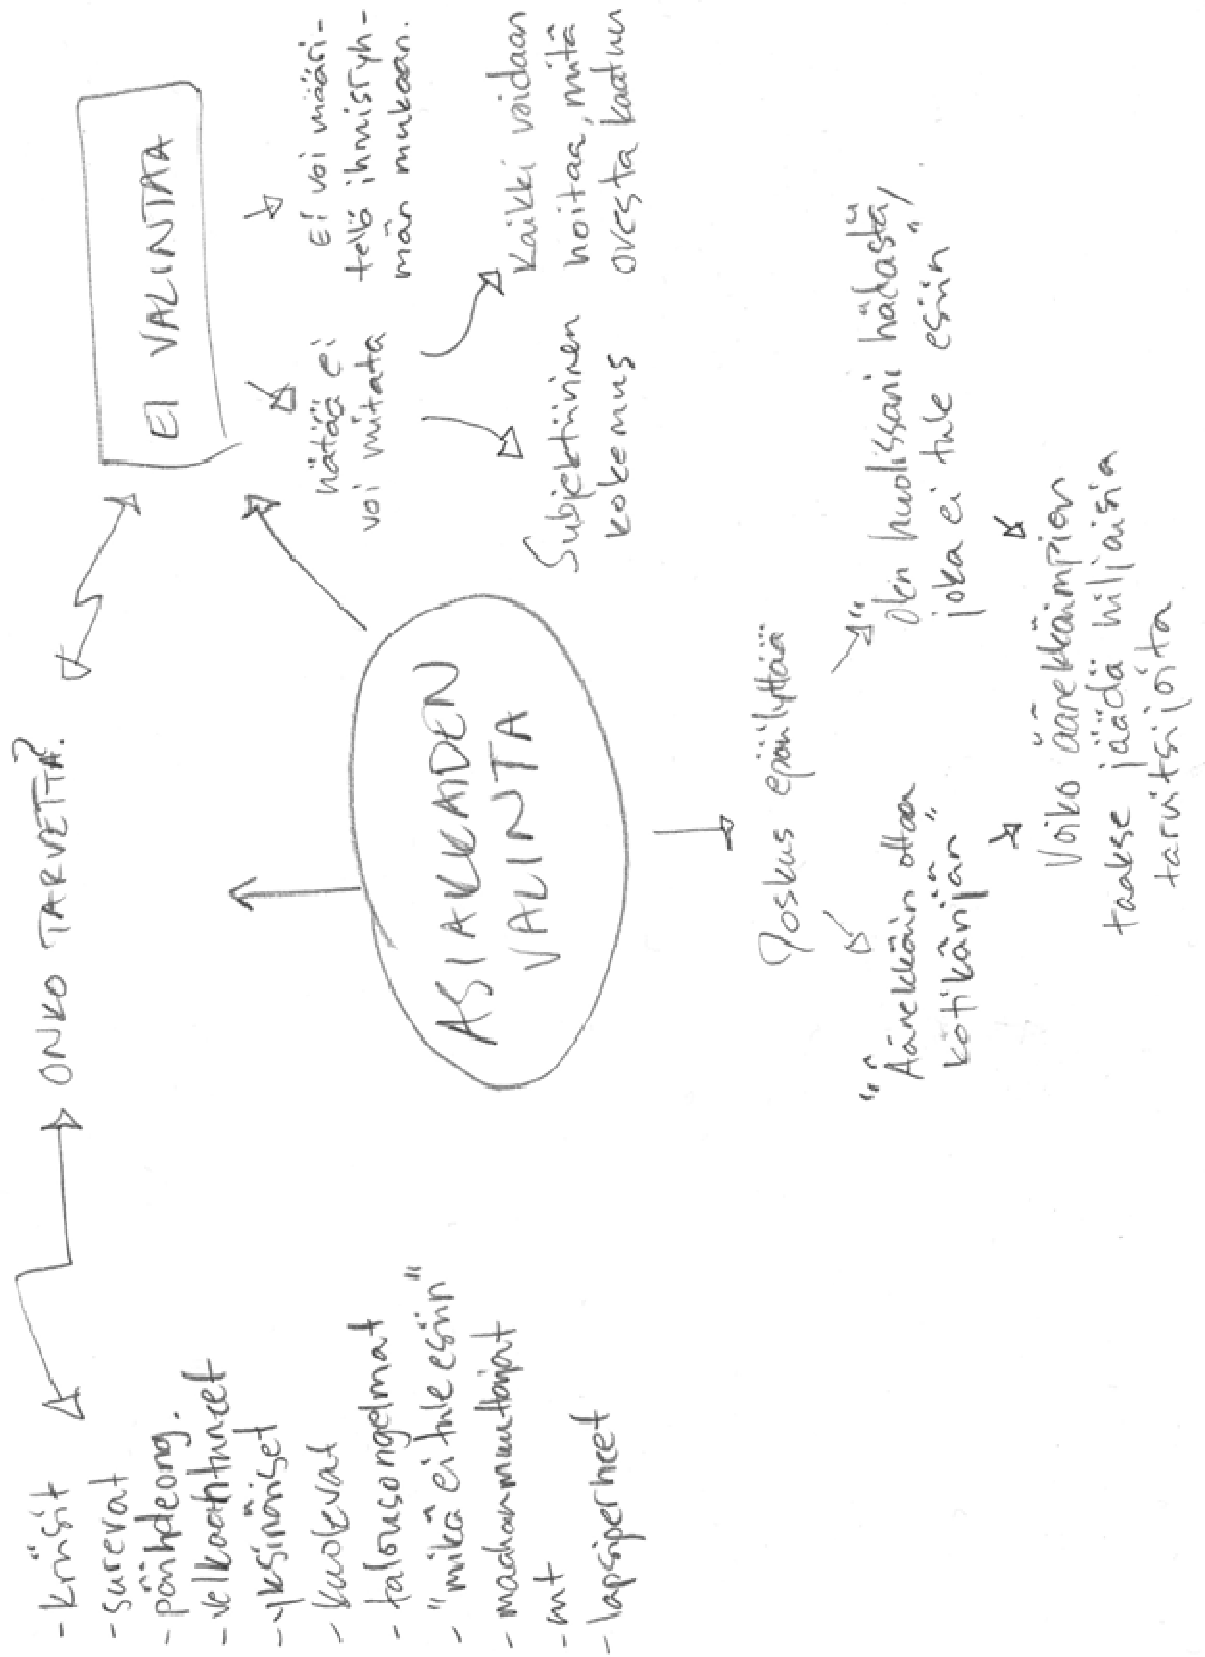 - kriisit
- surevat
- päihdeong.
- velkaantuneet
- yksinäiset
- kuolevat
- talousongelmat
- "mikä ei tule esiin"
- maahanmuuttajat
- mt
- lapsiperheet
ONKO TARVETTA?
EI VALINTAA
hätää ei
voi mitata
Ei voi määri-
tellä ihmisryh-
män mukaan.
Subjektiivinen
kokemus
Kaikki voidaan
hoitaa, mitä
ovesta kaatuu
ASIAKKAIDEN
VALINTA
Joskus epäilyttää
"Äänekkäin ottaa
kotikänijän"
"Olen huolissani hädästä,
joka ei tule esiin"
Voiko äänekkäimpien
taakse jäädä hiljaisia
tarvitsijoita